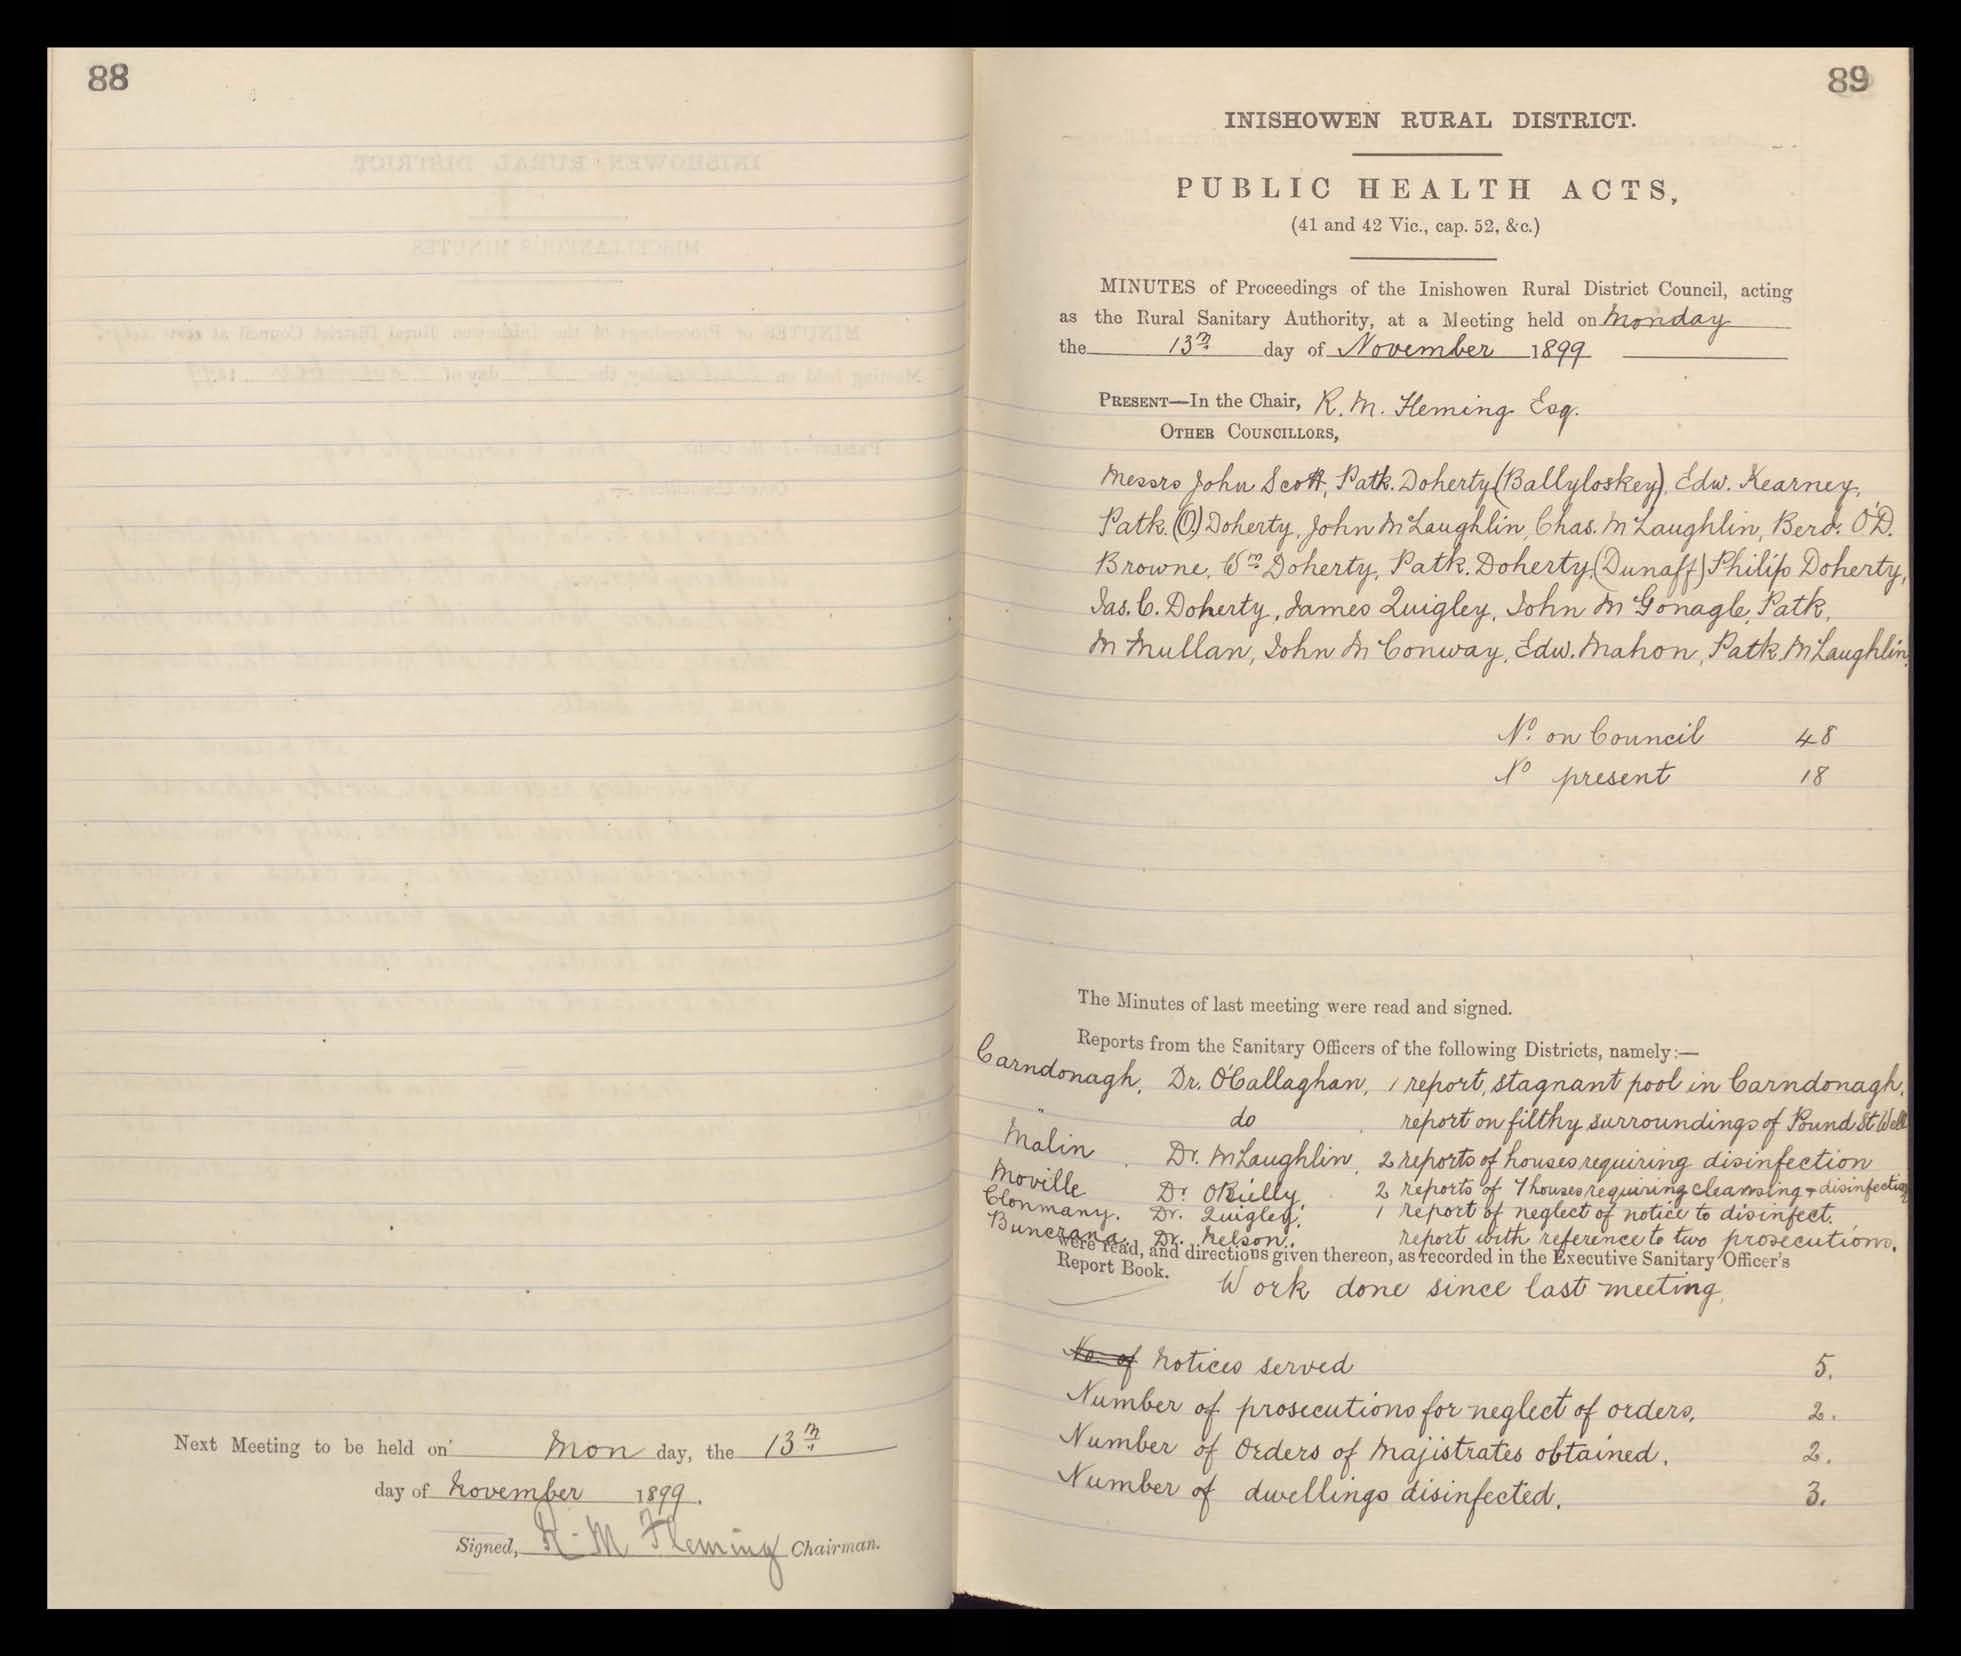 88
Next Meeting to be held on Mon day, the 13th
day of November 1899.
Signed, R. M Fleming Chairman.
89
INISHOWEN RURAL DISTRICT.
PUBLIC HEALTH ACTS,
(41 and 42 Vic., cap. 52, &c.)
MINUTES of Proceedings of the Inishowen Rural District Council, acting
as the Rural Sanitary Authority, at a Meeting held on Monday
the 13th day of November 1899
PRESENT—In the Chair, R. M. Fleming Esq.
OTHER COUNCILLORS,
Messrs John Scott, Patk. Doherty (Ballyloskey), Edw. Kearney,
Patk. (O) Doherty, John McLaughlin, Chas. McLaughlin, Berd. O'D.
Browne, Wm Doherty, Patk. Doherty, (Dunaff) Philip Doherty,
Jas. C. Doherty, James Quigley, John McGonagle, Patk.
McMullan, John McConway, Edw. Mahon, Patk McLaughlin,
No. on Council 48
No present 18
The Minutes of last meeting were read and signed.
Reports from the Sanitary Officers of the following Districts, namely:—
Carndonagh, Dr. O'Callaghan, 1 report, stagnant pool in Carndonagh.
" do report on filthy surroundings of Pound St Well
Malin Dr. McLaughlin, 2 reports of houses requiring disinfection
Moville Dr. O'Reilly 2 reports of 7 houses requiring cleansing + disinfection
Clonmany. Dr. Quigley. 1 report of neglect of notice to disinfect.
Buncrana. Dr. Nelson. report with reference to two prosecutions.
were read, and directions given thereon, as recorded in the Executive Sanitary Officer's
Report Book. Work done since last meeting.
No. of Notices served 5.
Number of prosecutions for neglect of orders. 2.
Number of Orders of Majistrates obtained. 2.
Number of dwellings disinfected. 3.